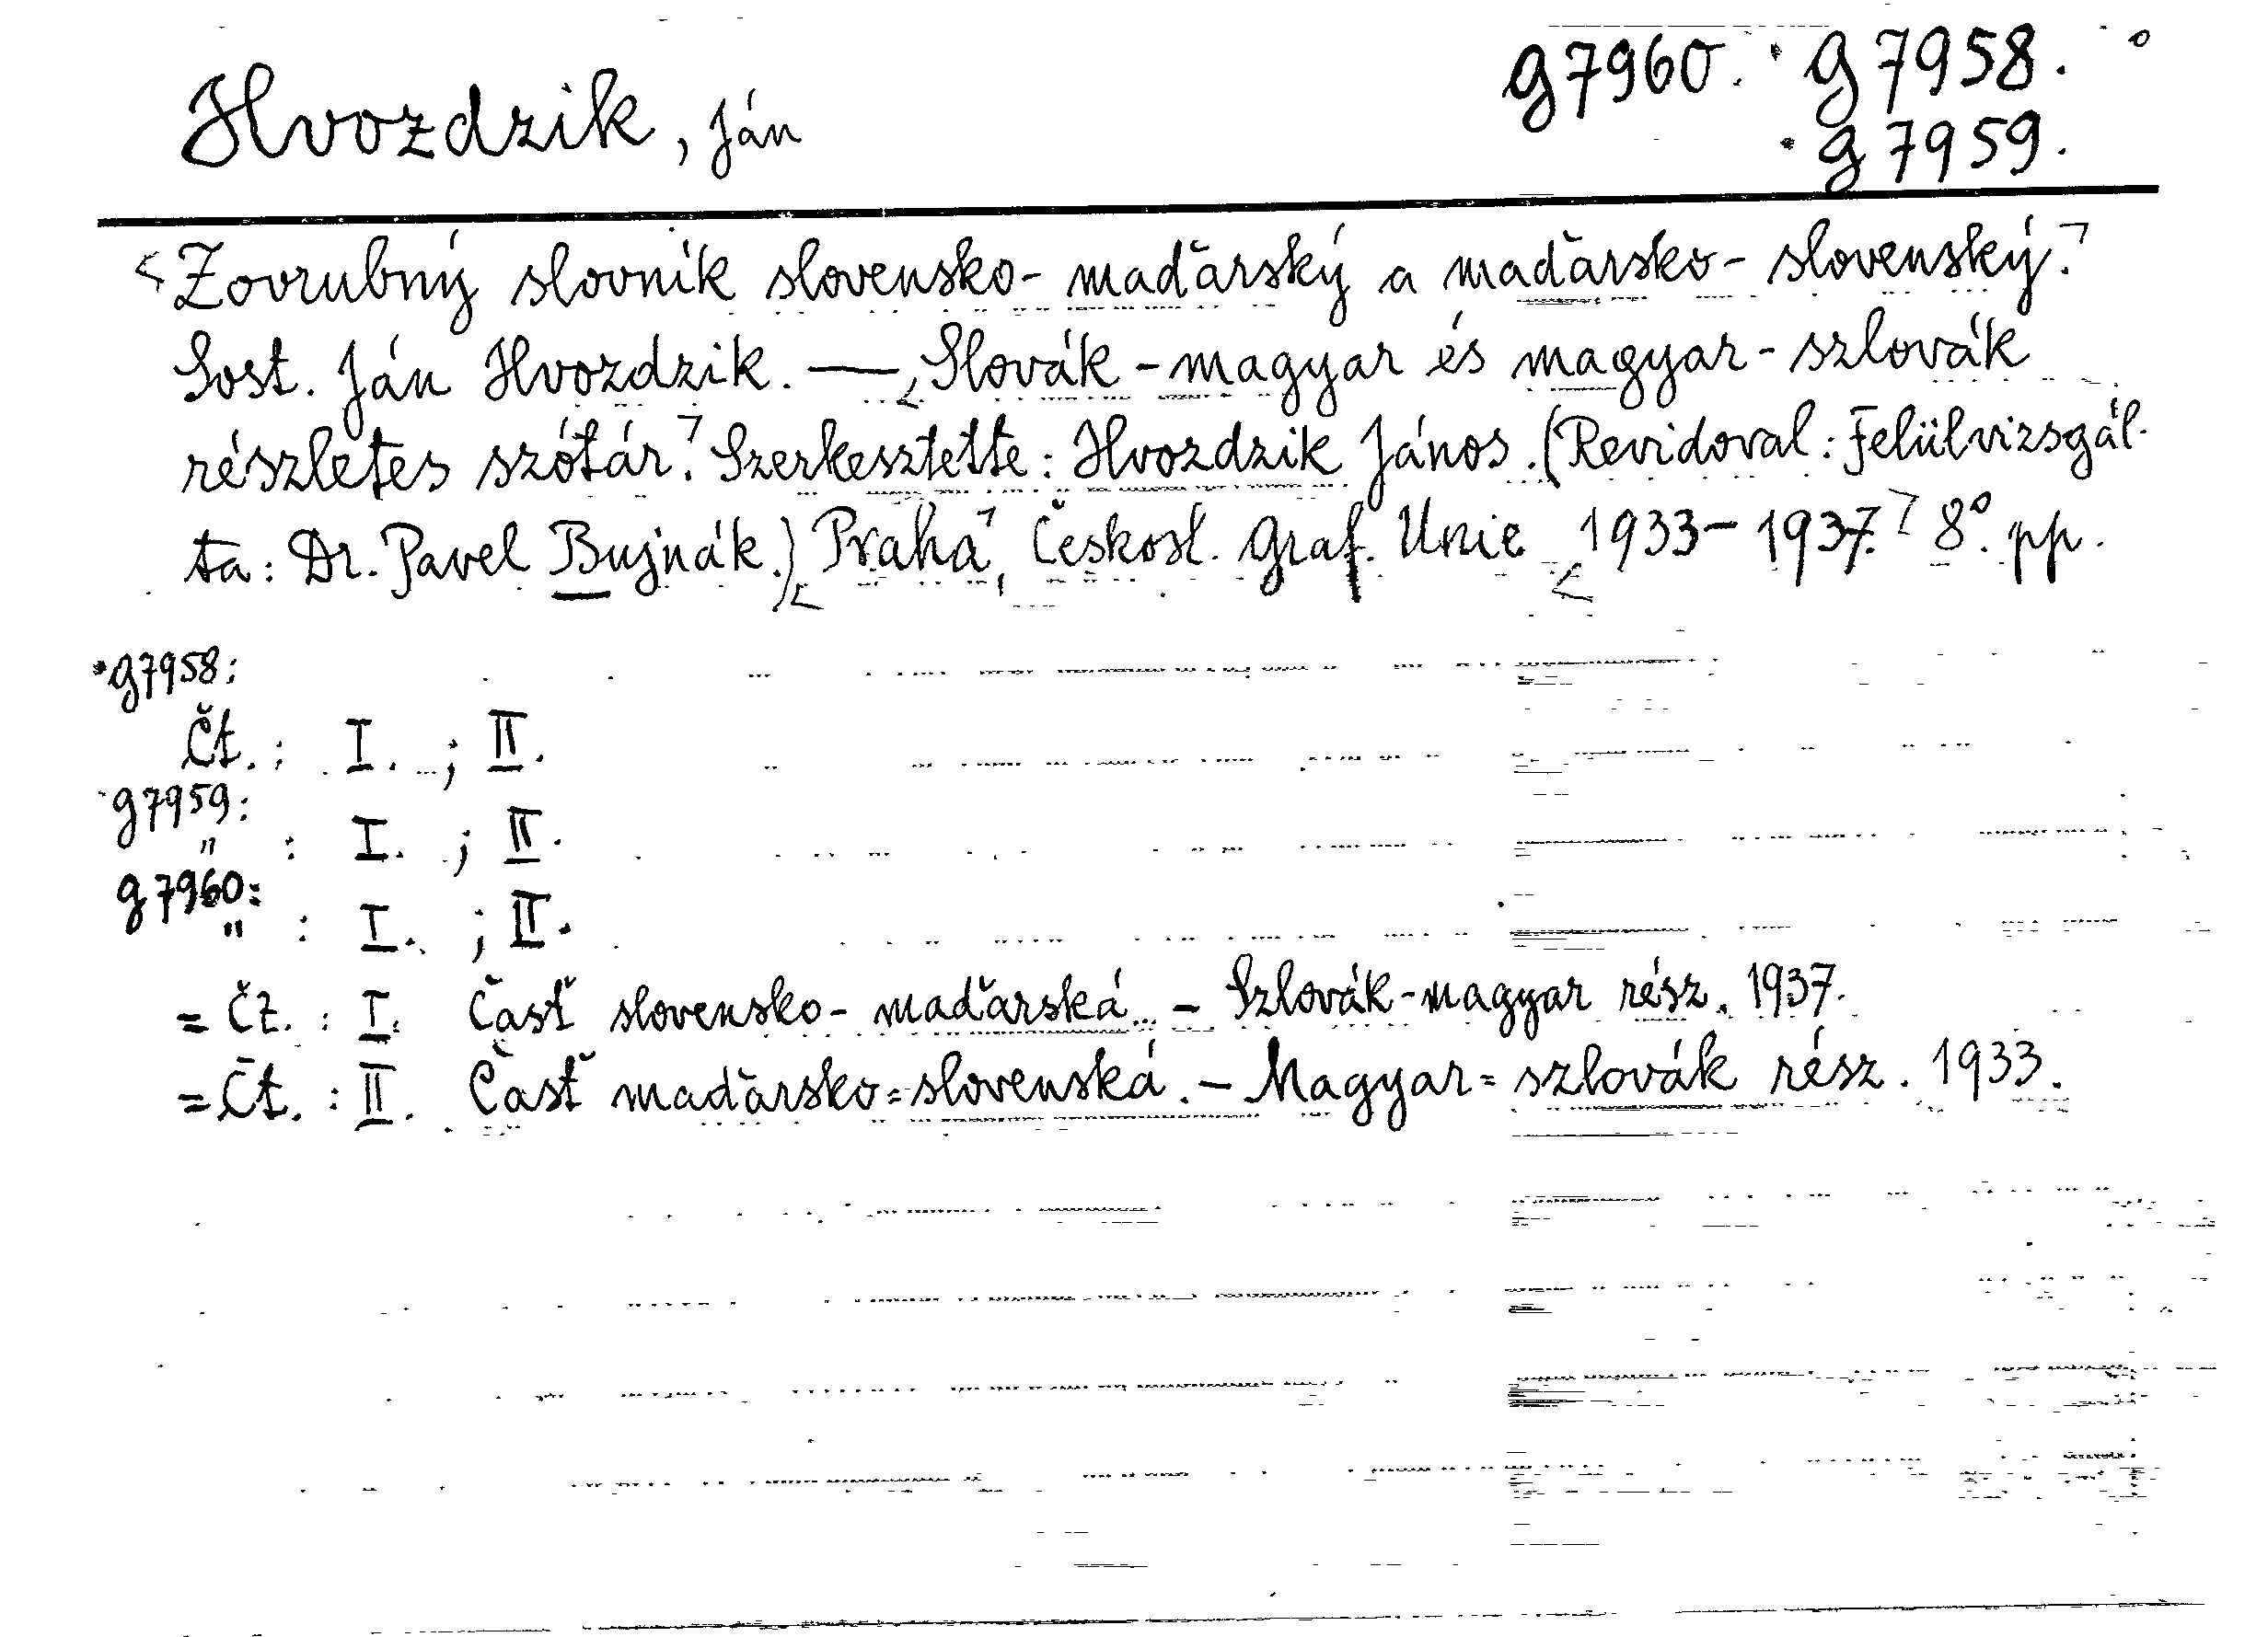 Hvozdzik, Ján
g7960. g7958.
g7959.
Zovrubný slovník slovensko-maďarský a maďarsko-slovenský.
Sost. Ján Hvozdzik. — Slovák-magyar és magyar-szlovák
részletes szótár. Szerkesztette: Hvozdzik János. (Revidoval: Felülvizsgál-
ta: Dr. Pavel Bujnák.) Praha, Českosl. Graf. Unie 1933-1937. 8°. pp.
g7958:
Čt.: I. ; II.
g7959:
" : I. ; II.
g7960:
" : I. ; II.
= Čt. : I. Časť slovensko-maďarská. - Szlovák-magyar rész. 1937.
= Čt. : II. Časť maďarsko=slovenská. - Magyar=szlovák rész. 1933.